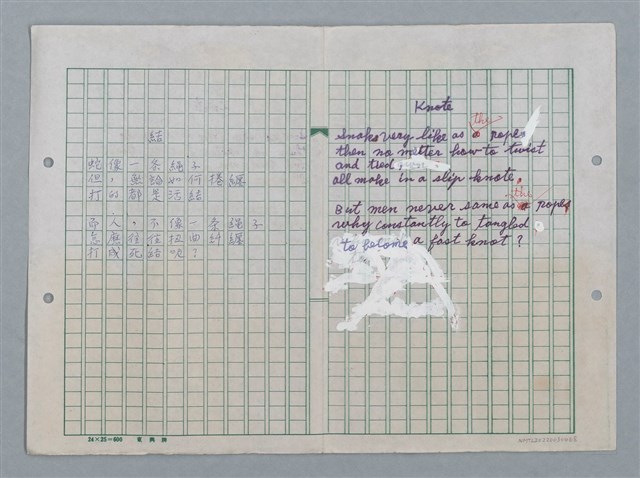 結
蛇像一条繩子
但，無論如何捲纏
打的都是活結
而人，不像一条繩子
怎麼往往扭曲糾纏
打成死結呢？
Knote
Snake very like as a rope
the
then no matter how to twist
and tied
all make in a slip knote,
But men never same as a rope,
the
why constantly to tangled
to become a fast knot?
24×25=600 東興牌